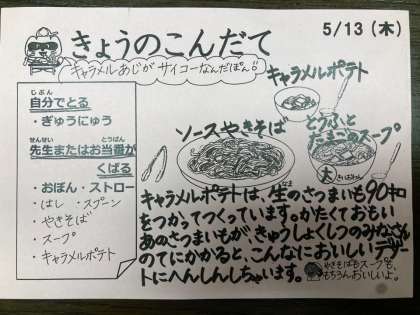 きょうのこんだて
5/13（木）
キャラメルあじが サイコーなんだぽん!!
じぶん
自分でとる
・ぎゅうにゅう
せんせい とうばん
先生またはお当番が
くばる
・おぼん・ストロー
・はし ・スプーン
・やきそば
・スープ
・キャラメルポテト
キャラメルポテト
ソースやきそば
とうふと
たまごのスープ
大
キャラメルポテトは、生のさつまいも90キロ
をつかってつくっています。かたくておもい
あのさつまいもが、きゅうしょくしつのみなさん
のてにかかると、こんなにおいしいデザー
トにへんしんしちゃいます。
やきそばもスープも、
もちろんおいしいよ。